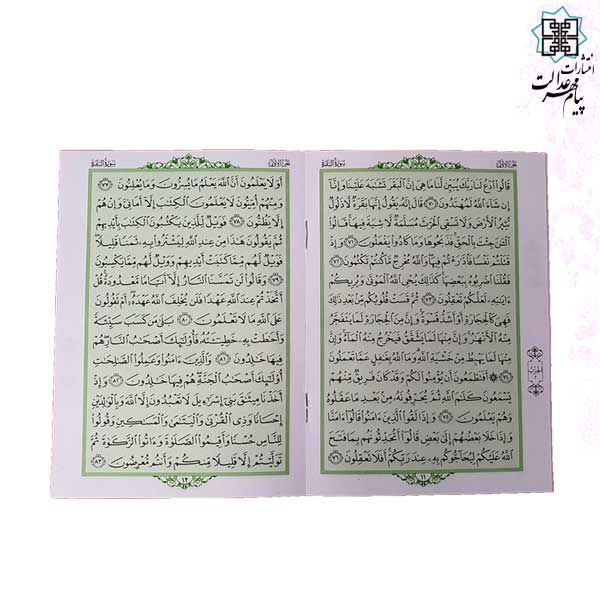 انتشارات
پیام مهر عدالت
الجزء الاول سورة البقرة
قَالُوا۟ ٱدْعُ لَنَا رَبَّكَ يُبَيِّن لَّنَا مَا هِىَ إِنَّ ٱلْبَقَرَ تَشَٰبَهَ عَلَيْنَا وَإِنَّآ
إِن شَآءَ ٱللَّهُ لَمُهْتَدُونَ ﴿٧٠﴾ قَالَ إِنَّهُۥ يَقُولُ إِنَّهَا بَقَرَةٌ لَّا ذَلُولٌ
تُثِيرُ ٱلْأَرْضَ وَلَا تَسْقِى ٱلْحَرْثَ مُسَلَّمَةٌ لَّا شِيَةَ فِيهَا قَالُوا۟
ٱلْـَٰٔنَ جِئْتَ بِٱلْحَقِّ فَذَبَحُوهَا وَمَا كَادُوا۟ يَفْعَلُونَ ﴿٧١﴾ وَإِذْ
قَتَلْتُمْ نَفْسًا فَٱدَّٰرَْٰٔتُمْ فِيهَا وَٱللَّهُ مُخْرِجٌ مَّا كُنتُمْ تَكْتُمُونَ ﴿٧٢﴾
فَقُلْنَا ٱضْرِبُوهُ بِبَعْضِهَا كَذَٰلِكَ يُحْىِ ٱللَّهُ ٱلْمَوْتَىٰ وَيُرِيكُمْ
ءَايَٰتِهِۦ لَعَلَّكُمْ تَعْقِلُونَ ﴿٧٣﴾ ثُمَّ قَسَتْ قُلُوبُكُم مِّنۢ بَعْدِ ذَٰلِكَ
فَهِىَ كَٱلْحِجَارَةِ أَوْ أَشَدُّ قَسْوَةً وَإِنَّ مِنَ ٱلْحِجَارَةِ لَمَا يَتَفَجَّرُ
مِنْهُ ٱلْأَنْهَٰرُ وَإِنَّ مِنْهَا لَمَا يَشَّقَّقُ فَيَخْرُجُ مِنْهُ ٱلْمَآءُ وَإِنَّ
مِنْهَا لَمَا يَهْبِطُ مِنْ خَشْيَةِ ٱللَّهِ وَمَا ٱللَّهُ بِغَٰفِلٍ عَمَّا تَعْمَلُونَ
﴿٧٤﴾ ۞ أَفَتَطْمَعُونَ أَن يُؤْمِنُوا۟ لَكُمْ وَقَدْ كَانَ فَرِيقٌ مِّنْهُمْ
يَسْمَعُونَ كَلَٰمَ ٱللَّهِ ثُمَّ يُحَرِّفُونَهُۥ مِنۢ بَعْدِ مَا عَقَلُوهُ
وَهُمْ يَعْلَمُونَ ﴿٧٥﴾ وَإِذَا لَقُوا۟ ٱلَّذِينَ ءَامَنُوا۟ قَالُوٓا۟ ءَامَنَّا
وَإِذَا خَلَا بَعْضُهُمْ إِلَىٰ بَعْضٍ قَالُوٓا۟ أَتُحَدِّثُونَهُم بِمَا فَتَحَ
ٱللَّهُ عَلَيْكُمْ لِيُحَآجُّوكُم بِهِۦ عِندَ رَبِّكُمْ أَفَلَا تَعْقِلُونَ ﴿٧٦﴾
١١
الجزء الاول سورة البقرة
أَوَلَا يَعْلَمُونَ أَنَّ ٱللَّهَ يَعْلَمُ مَا يُسِرُّونَ وَمَا يُعْلِنُونَ ﴿٧٧﴾
وَمِنْهُمْ أُمِّيُّونَ لَا يَعْلَمُونَ ٱلْكِتَٰبَ إِلَّآ أَمَانِىَّ وَإِنْ هُمْ
إِلَّا يَظُنُّونَ ﴿٧٨﴾ فَوَيْلٌ لِّلَّذِينَ يَكْتُبُونَ ٱلْكِتَٰبَ بِأَيْدِيهِمْ
ثُمَّ يَقُولُونَ هَٰذَا مِنْ عِندِ ٱللَّهِ لِيَشْتَرُوا۟ بِهِۦ ثَمَنًا قَلِيلًا
فَوَيْلٌ لَّهُم مِّمَّا كَتَبَتْ أَيْدِيهِمْ وَوَيْلٌ لَّهُم مِّمَّا يَكْسِبُونَ
﴿٧٩﴾ وَقَالُوا۟ لَن تَمَسَّنَا ٱلنَّارُ إِلَّآ أَيَّامًا مَّعْدُودَةً قُلْ
أَتَّخَذْتُمْ عِندَ ٱللَّهِ عَهْدًا فَلَن يُخْلِفَ ٱللَّهُ عَهْدَهُۥٓ أَمْ تَقُولُونَ
عَلَى ٱللَّهِ مَا لَا تَعْلَمُونَ ﴿٨٠﴾ بَلَىٰ مَن كَسَبَ سَيِّئَةً
وَأَحَٰطَتْ بِهِۦ خَطِيٓـَٔتُهُۥ فَأُو۟لَٰٓئِكَ أَصْحَٰبُ ٱلنَّارِ هُمْ
فِيهَا خَٰلِدُونَ ﴿٨١﴾ وَٱلَّذِينَ ءَامَنُوا۟ وَعَمِلُوا۟ ٱلصَّٰلِحَٰتِ
أُو۟لَٰٓئِكَ أَصْحَٰبُ ٱلْجَنَّةِ هُمْ فِيهَا خَٰلِدُونَ ﴿٨٢﴾ وَإِذْ
أَخَذْنَا مِيثَٰقَ بَنِىٓ إِسْرَٰٓءِيلَ لَا تَعْبُدُونَ إِلَّا ٱللَّهَ وَبِٱلْوَٰلِدَيْنِ
إِحْسَانًا وَذِى ٱلْقُرْبَىٰ وَٱلْيَتَٰمَىٰ وَٱلْمَسَٰكِينِ وَقُولُوا۟
لِلنَّاسِ حُسْنًا وَأَقِيمُوا۟ ٱلصَّلَوٰةَ وَءَاتُوا۟ ٱلزَّكَوٰةَ ثُمَّ
تَوَلَّيْتُمْ إِلَّا قَلِيلًا مِّنكُمْ وَأَنتُم مُّعْرِضُونَ ﴿٨٣﴾
١٢